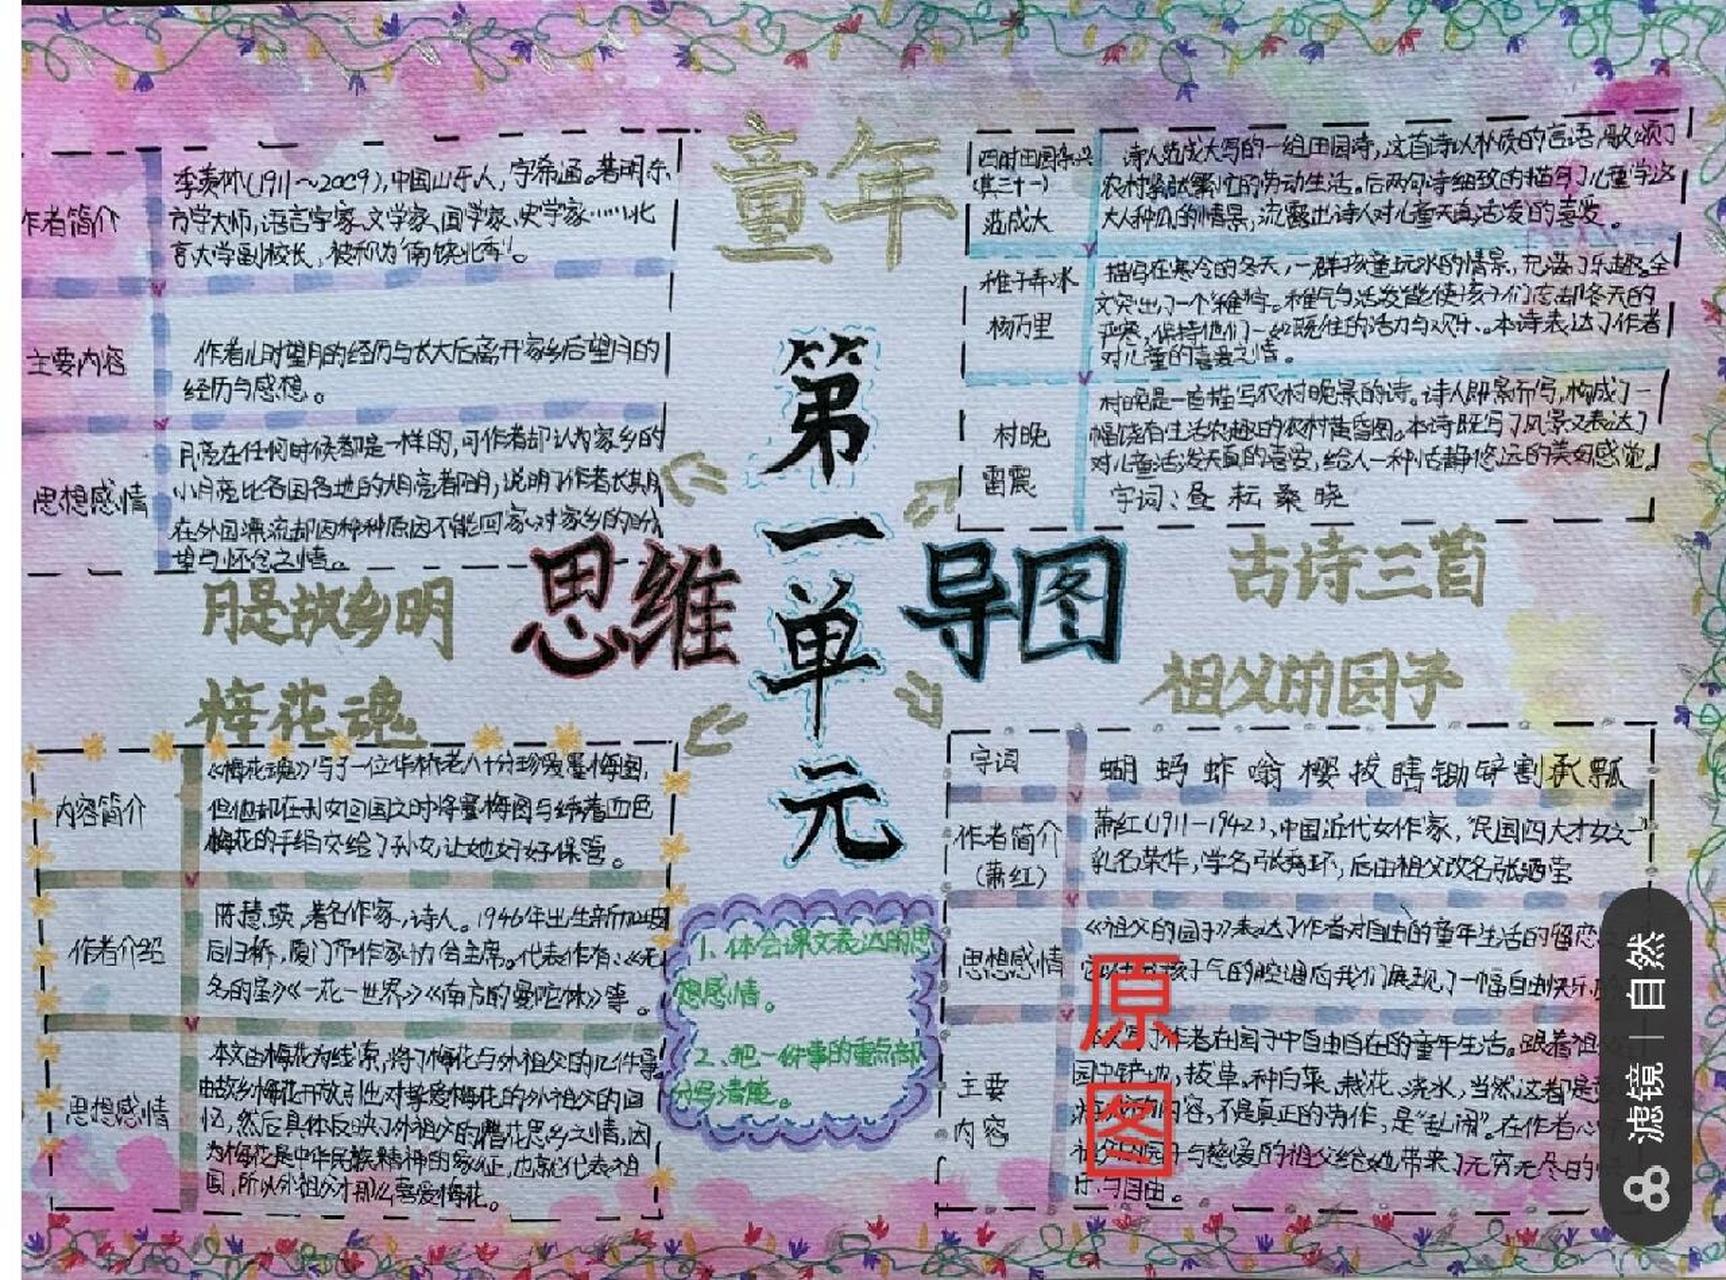 童年
第一单元
思维导图
作者简介
季羡林(1911~2009),中国山东人,字希逋。著明东
方学大师,语言学家、文学家、国学家、史学家……北
京大学副校长,被称为“南饶北季”。
主要内容
作者儿时望月的经历与长大后离开家乡后望月的
经历与感想。
思想感情
月亮在任何时候都是一样的,可作者却认为家乡的
小月亮比各国各地的大月亮都明,说明了作者长期
在外国漂流却因种种原因不能回家,对家乡的盼
望与怀念之情。
月是故乡明
四时田园杂兴
(其三十一)
范成大
诗人范成大写的一组田园诗,这首诗以朴质的言语,歌颂了
农村紧张繁忙的劳动生活。后两句诗细致的描写了儿童学这
大人种瓜的情景,流露出诗人对儿童天真活泼的喜爱。
稚子弄冰
杨万里
描写在寒冷的冬天,一群孩童玩冰的情景,充满了乐趣。全
文突出了一个“稚”字。稚气与活泼能使孩子们忘却冬天的
严寒,保持他们一如既往的活力与欢乐。本诗表达了作者
对儿童的喜爱之情。
村晚
雷震
村晚是一首描写农村晚景的诗。诗人即景而写,构成了一
幅饶有生活农趣的农村黄昏图。本诗既写了风景又表达了
对儿童活泼天真的喜爱,给人一种恬静悠远的美好感觉。
字词:昼 耘 桑 晓
古诗三首
梅花魂
内容简介
《梅花魂》写了一位华侨老人十分珍爱墨梅图,
但他却在孙女回国之时将墨梅图与绣着血色
梅花的手绢交给了孙女,让她好好保管。
作者介绍
陈慧瑛,著名作家,诗人。1946年出生新加坡
后归侨,厦门市作家协会主席。代表作有:《无
名的星》《一花一世界》《南方的曼陀林》等。
思想感情
本文由梅花为线索,将了梅花与外祖父的几件事
由故乡梅花开放引出对挚爱梅花的外祖父的回
忆,然后具体反映了外祖父的惜花思乡之情,因
为梅花是中华民族精神的象征,也就代表祖
国,所以外祖父才那么喜爱梅花。
1、体会课文表达的思
想感情。
2、把一件事的重点部
分写清楚。
祖父的园子
字词
蝴 蚂 蚱 嗡 樱 拔 瞎 锄 铲 割 承 瓢
作者简介
(萧红)
萧红(1911-1942),中国近代女作家,“民国四大才女之一”
乳名荣华,学名张秀环,后由祖父改名张迺莹
思想感情
《祖父的园子》表达了作者对自由的童年生活的留恋
孩子气的腔调向我们展现了一幅自由快乐
主要
内容
写了作者在园子中自由自在的童年生活。跟着祖
园中铲地,拔草、种白菜、栽花、浇水,当然这都是
内容,不是真正的劳作,是“乱闹”。在作者心
园子与慈爱的祖父给她带来了无穷无尽的
乐与自由。
原图
滤镜 | 自然